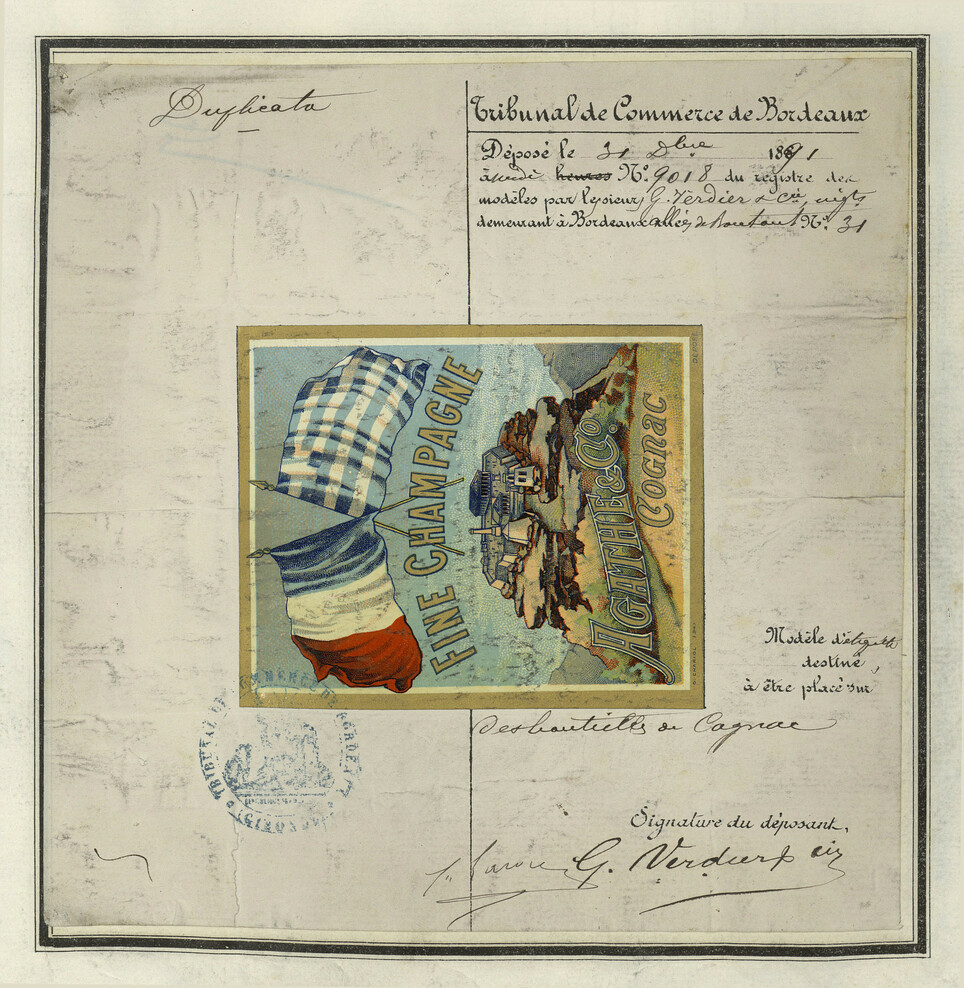 Duplicata
Tribunal de Commerce de Bordeaux
Déposé le 31 Dbre 1891
à midi heures N° 9018 du registre des
modèles par le sieur G. Verdier & Cie, nigts
demeurant à Bordeaux allées de Boutaut N° 31
FINE CHAMPAGNE
AGATHE & Co.
COGNAC
DÉPOSÉ
Modèle d'étiquette
destiné
à être placé sur
des bouteilles de Cognac
TRIBUNAL DE COMMERCE DE BORDEAUX
Signature du déposant,
G. Verdier